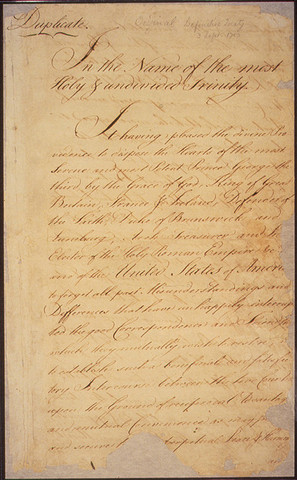 Duplicate.
Definitive Treaty
3 Sept. 1783
In the Name of the most
Holy & undivided Trinity.
It having pleased the divine Pro
vidence to dispose the Hearts of the most
Serene and most Potent Prince George the
third, by the Grace of God, King of Great
Britain, France & Ireland, Defender of
the Faith, Duke of Brunswick and
Lunebourg, Arch Treasurer and Prince
Elector of the Holy Roman Empire &c. and
of the United States of America
to forget all past Misunderstandings and
Differences that have unhappily interrup
ted the good Correspondence and Friendship
which they mutually wish to restore; and
to establish such a beneficial and satisfac
tory Intercourse between the two Countries
upon the Ground of reciprocal Advantages
and mutual Convenience as may promote
and secure to both perpetual Peace & Harmony